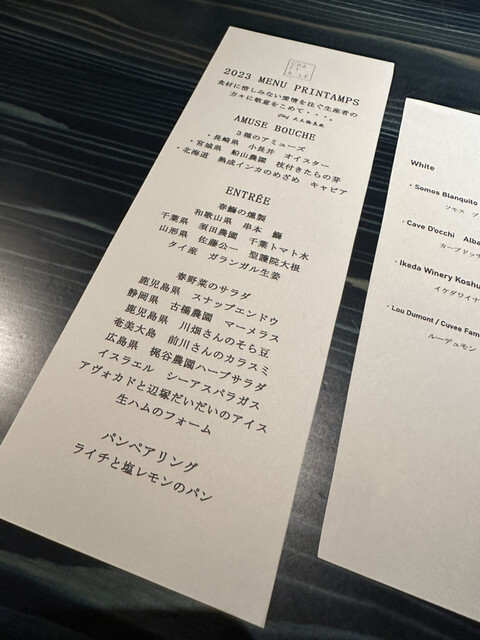 2023 MENU PRINTAMPS
食材に惜しみない愛情を注ぐ生産者の
方々に敬意をこめて・・・・
Chef
AMUSE BOUCHE
3種のアミューズ
・長崎県 小長井 オイスター
・宮城県 船山農園 枝付きたらの芽
・北海道 熟成インカのめざめ キャビア
ENTRÉE
春鰤の燻製
和歌山県 串本 鰤
千葉県 須田農園 千葉トマト水
山形県 佐藤公一 聖護院大根
タイ産 ガランガル生姜
春野菜のサラダ
鹿児島県 スナップエンドウ
静岡県 古橋農園 マーメラス
鹿児島県 川畑さんのそら豆
奄美大島 前川さんのカラスミ
広島県 梶谷農園ハーブサラダ
イスラエル シーアスパラガス
アヴォカドと辺塚だいだいのアイス
生ハムのフォーム
パンペアリング
ライチと塩レモンのパン
White
・Somos Blanquito
ソモス
・Cave D'occhi Alba
カーブドッチ
・Ikeda Winery Koshu
イケダワイナ
・Lou Dumont / Cuvee Fam
ルーデュモン